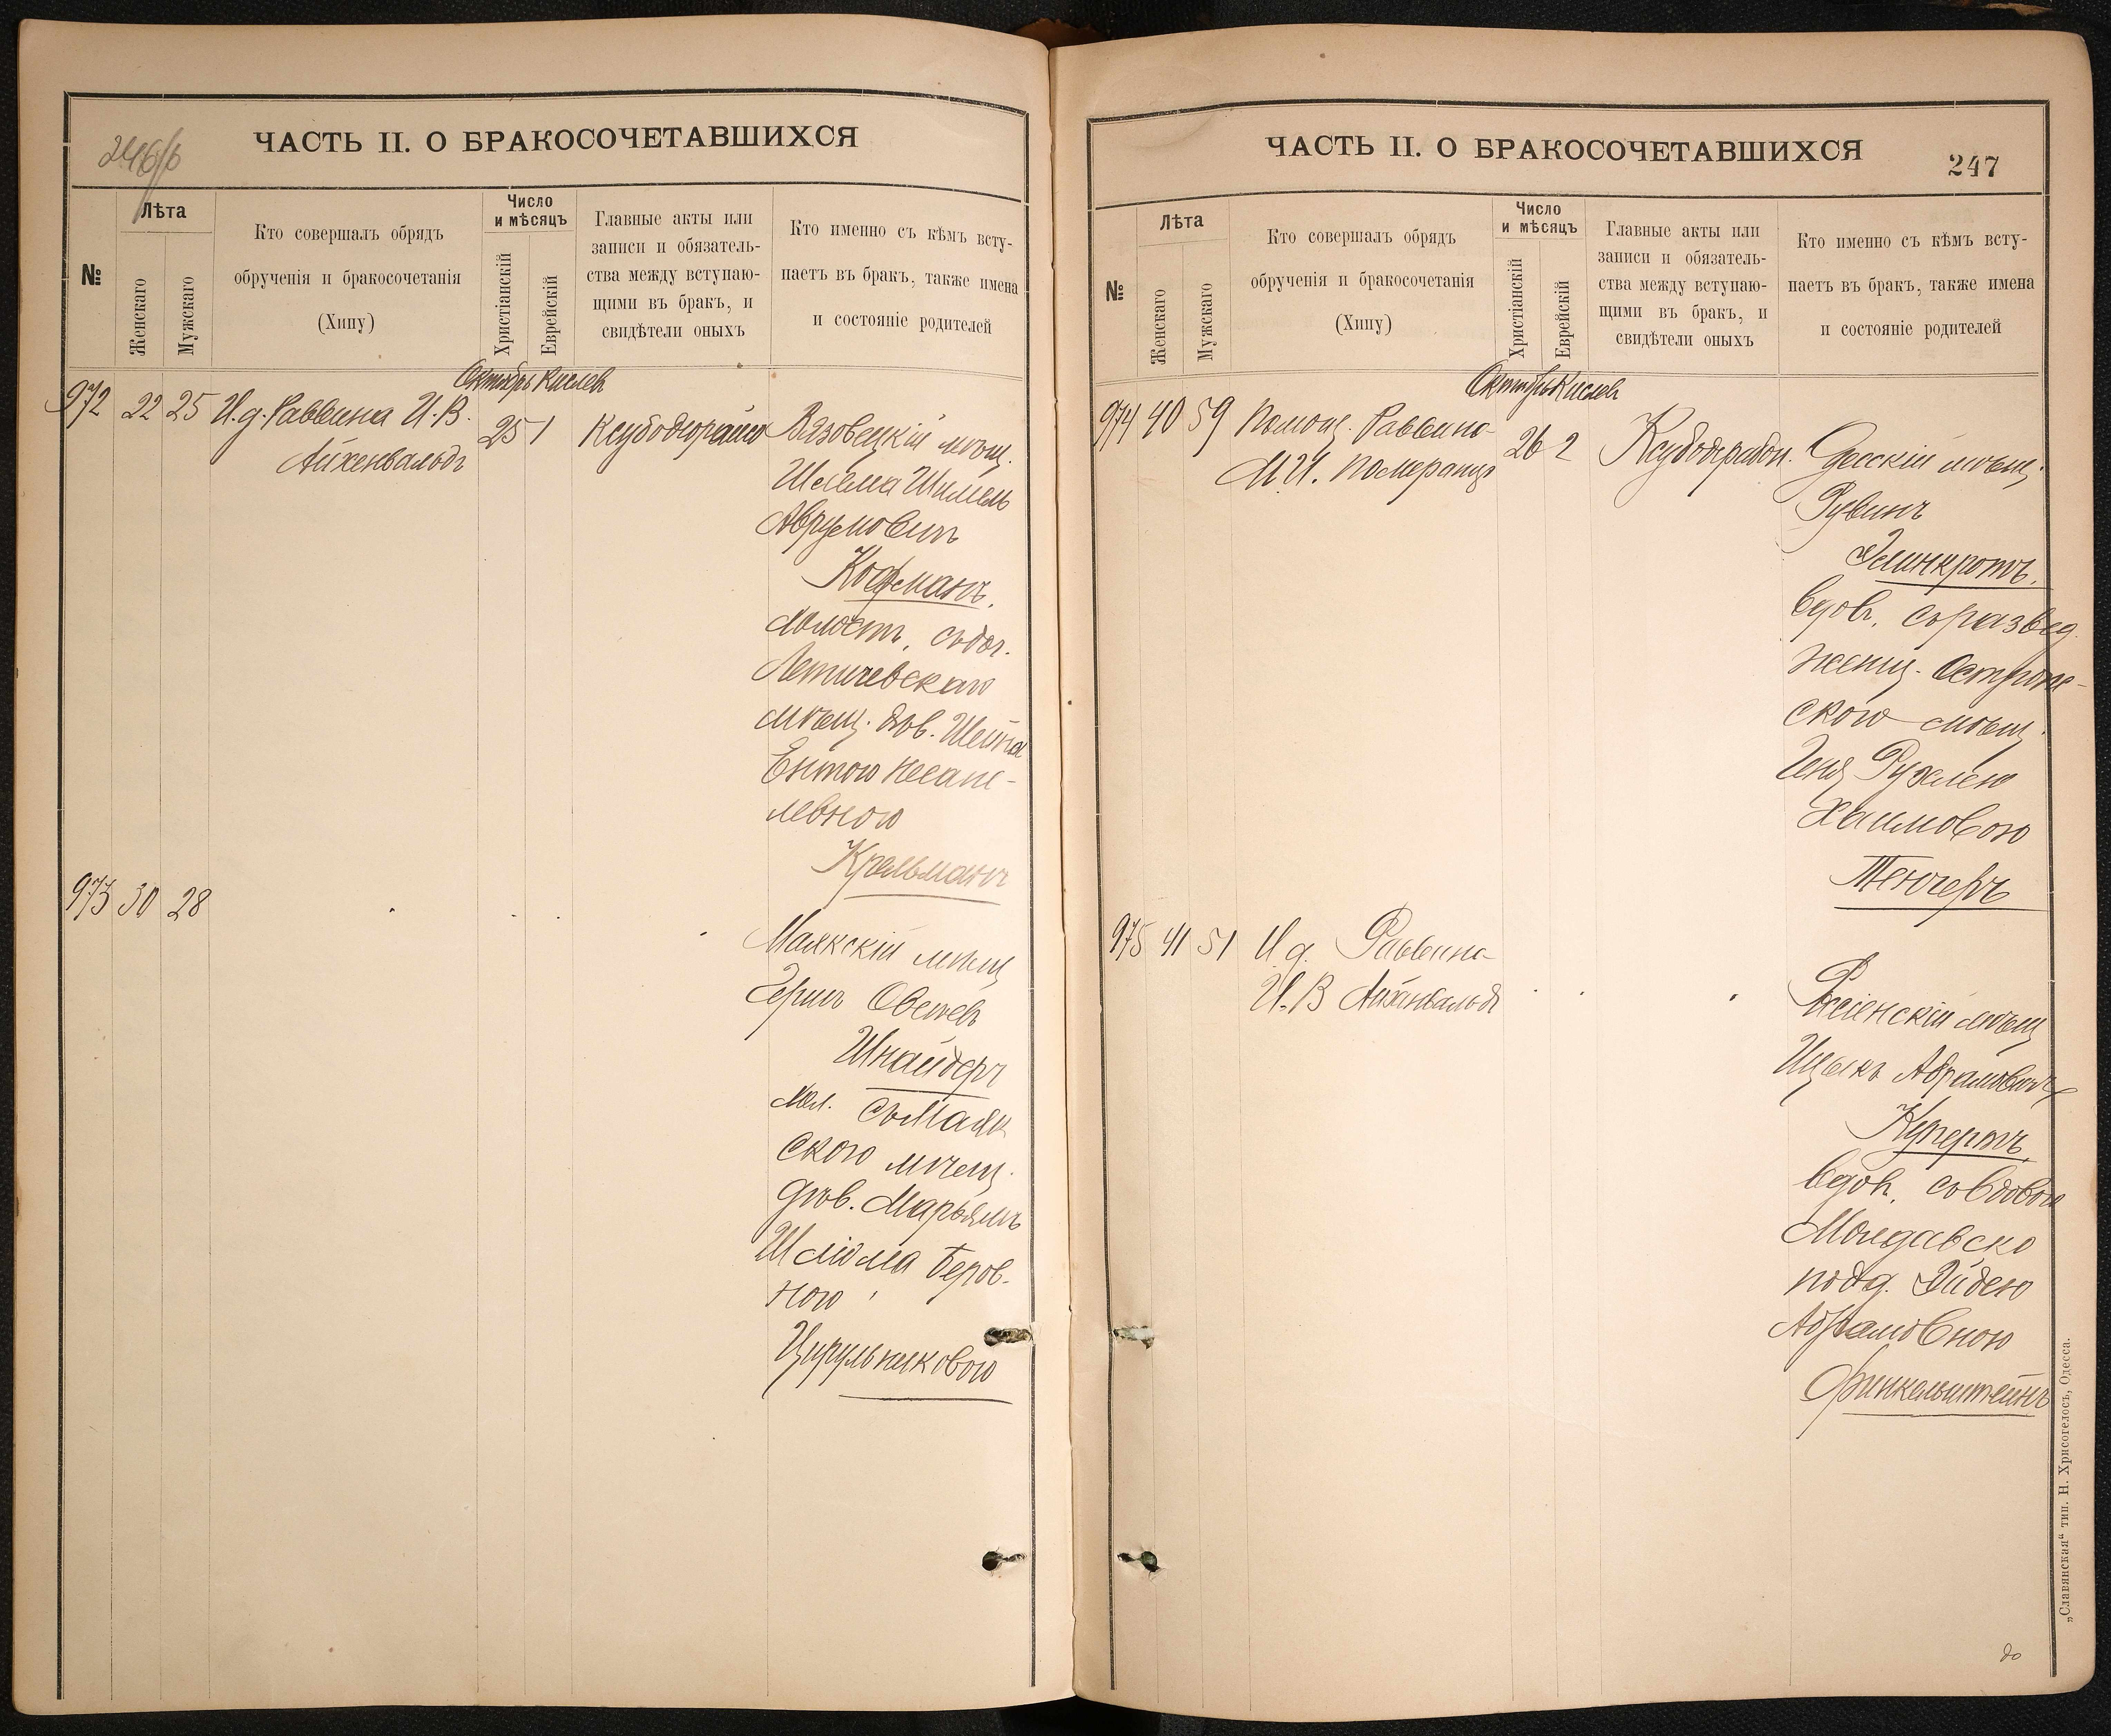 246/б
ЧАСТЬ II. О БРАКОСОЧЕТАВШИХСЯ
№
Лѣта
Женскаго
Мужскаго
Кто совершалъ обрядъ
обрученія и бракосочетанія
(Хипу)
Число
и мѣсяцъ
Христіанскій
Еврейскій
Главные акты или
записи и обязатель-
ства между вступаю-
щими въ бракъ, и
свидѣтели оныхъ
Кто именно съ кѣмъ всту-
паетъ въ бракъ, также имена
и состояніе родителей
Октябрь Кислев
972 22 25 И.д. Раввина И.В.
Айхенвальдъ
25 1
Вязовецкій мѣщ.
Шлема Шмиль
Аврумовичъ
Кофманъ.
холост. съ
Летичевскаго
мѣщ. дѣв. Шейна
Ентою
левною
973 30 28
Маякскій мѣщ
Герш Овшев
Шнайдеръ
хол. съ Маяк
скою мѣщ.
дѣв. Марьямъ
Шлiома Беров-
ною
Цирульниковою
ЧАСТЬ II. О БРАКОСОЧЕТАВШИХСЯ
247
№
Лѣта
Женскаго
Мужскаго
Кто совершалъ обрядъ
обрученія и бракосочетанія
(Хипу)
Число
и мѣсяцъ
Христіанскій
Еврейскій
Главные акты или
записи и обязатель-
ства между вступаю-
щими въ бракъ, и
свидѣтели оныхъ
Кто именно съ кѣмъ всту-
паетъ въ бракъ, также имена
и состояніе родителей
Октябрь Кислев
974 40 59 Помощ. Раввина
М.И. Померанцъ
26 2
Одесскій мѣщ.
Рувинъ
вдов. съ развед.
женщ.
скою мѣщ.
Геня Рухлею
Хаимовою
Тенчеръ
975 41 51 И д. Раввина
И.В Айхенвальдъ
мѣщ
Ицыкъ Абрамовичъ
Куперть
вдов. съ вдовою
Молдавско
подд. Эйдею
Абрамовною
Финкельштейнъ
„Славянская“ тип. Н. Хрисогелосъ, Одесса.